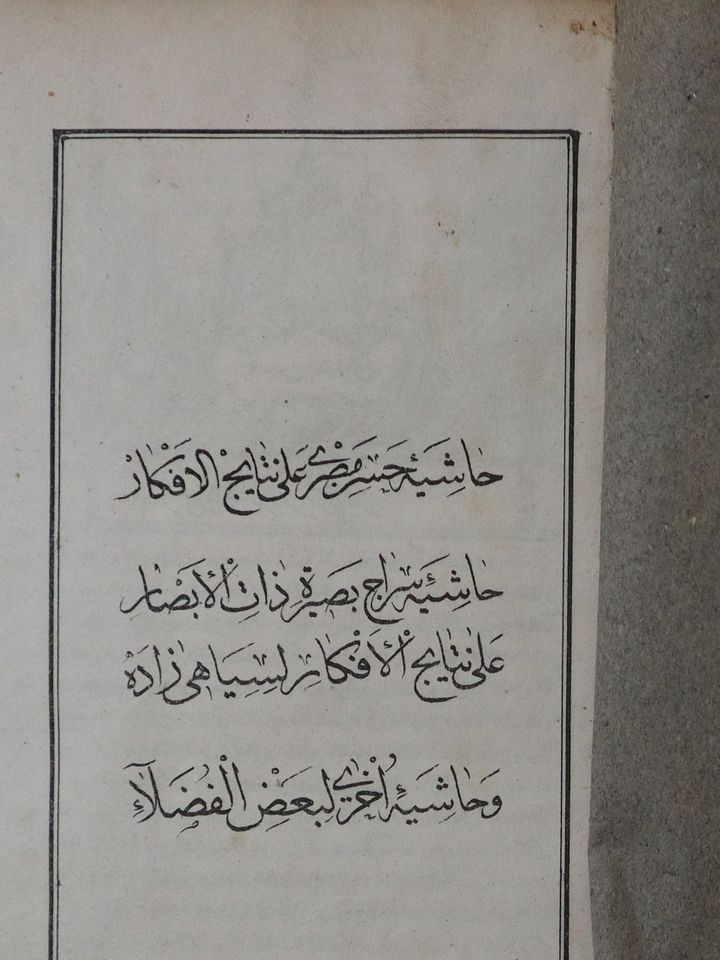 حَاشِيَۀ حَسَن مِصْرِي عَلَى نَتَايِجْ الاَفْكَارْ
حَاشِيَۀ سِرَاجِ بَصِيرَةِ ذَاتِ الْاَبْصَارِ
عَلَى نَتَايِجِ الْاَفْكَارِ لِسِيَاهِى زَادَهْ
وَحَاشِيَۀ اُخْرَى لِبَعْضِ الْفُضَلَاءِ